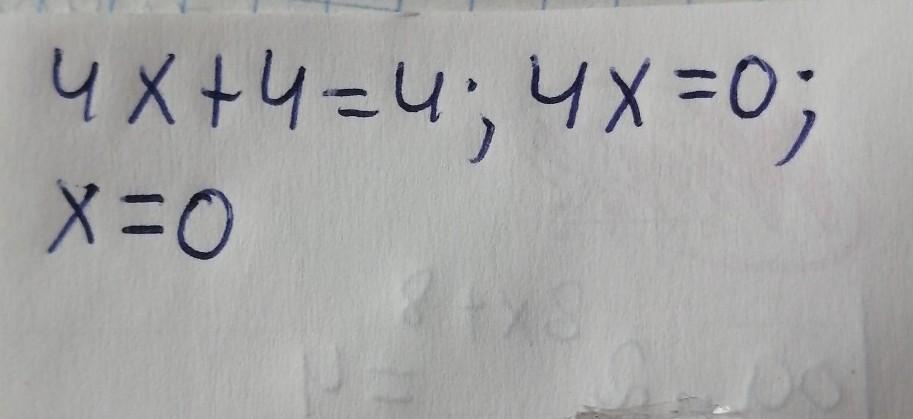 4x+4=4; 4x=0;
x=0